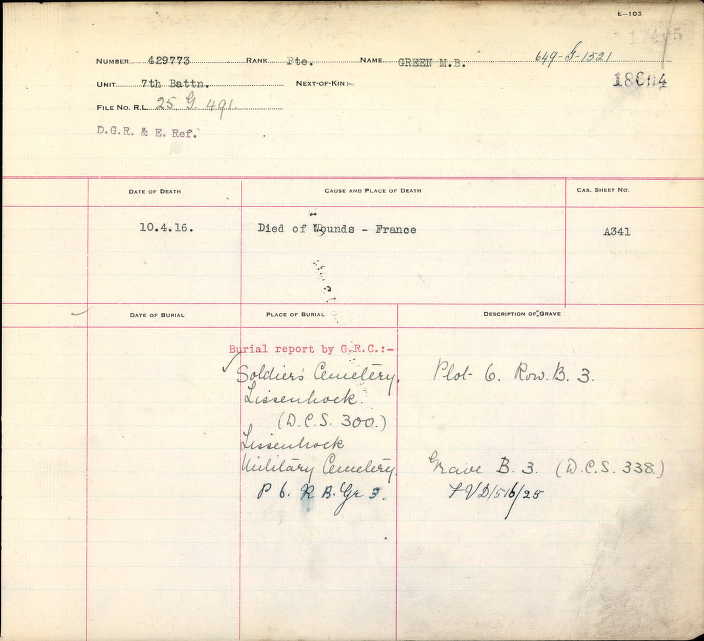 E-103
NUMBER 429773 RANK Pte. NAME GREEN M.B. 649-G-1521
UNIT 7th Battn. NEXT-OF-KIN:-
FILE NO. R.L. 25 G. 491.
D.G.R. & E. Ref.
DATE OF DEATH CAUSE AND PLACE OF DEATH CAS. SHEET NO.
10.4.16. Died of Wounds - France A341
DATE OF BURIAL PLACE OF BURIAL DESCRIPTION OF GRAVE
Burial report by G.R.C.:-
Soldiers' Cemetery, Plot 6. Row. B. 3.
Lissenhock.
(D.C.S. 300.)
Lissenhock
Military Cemetery. Grave B. 3. (D.C.S. 338.)
P 6. R B. Gr 3.